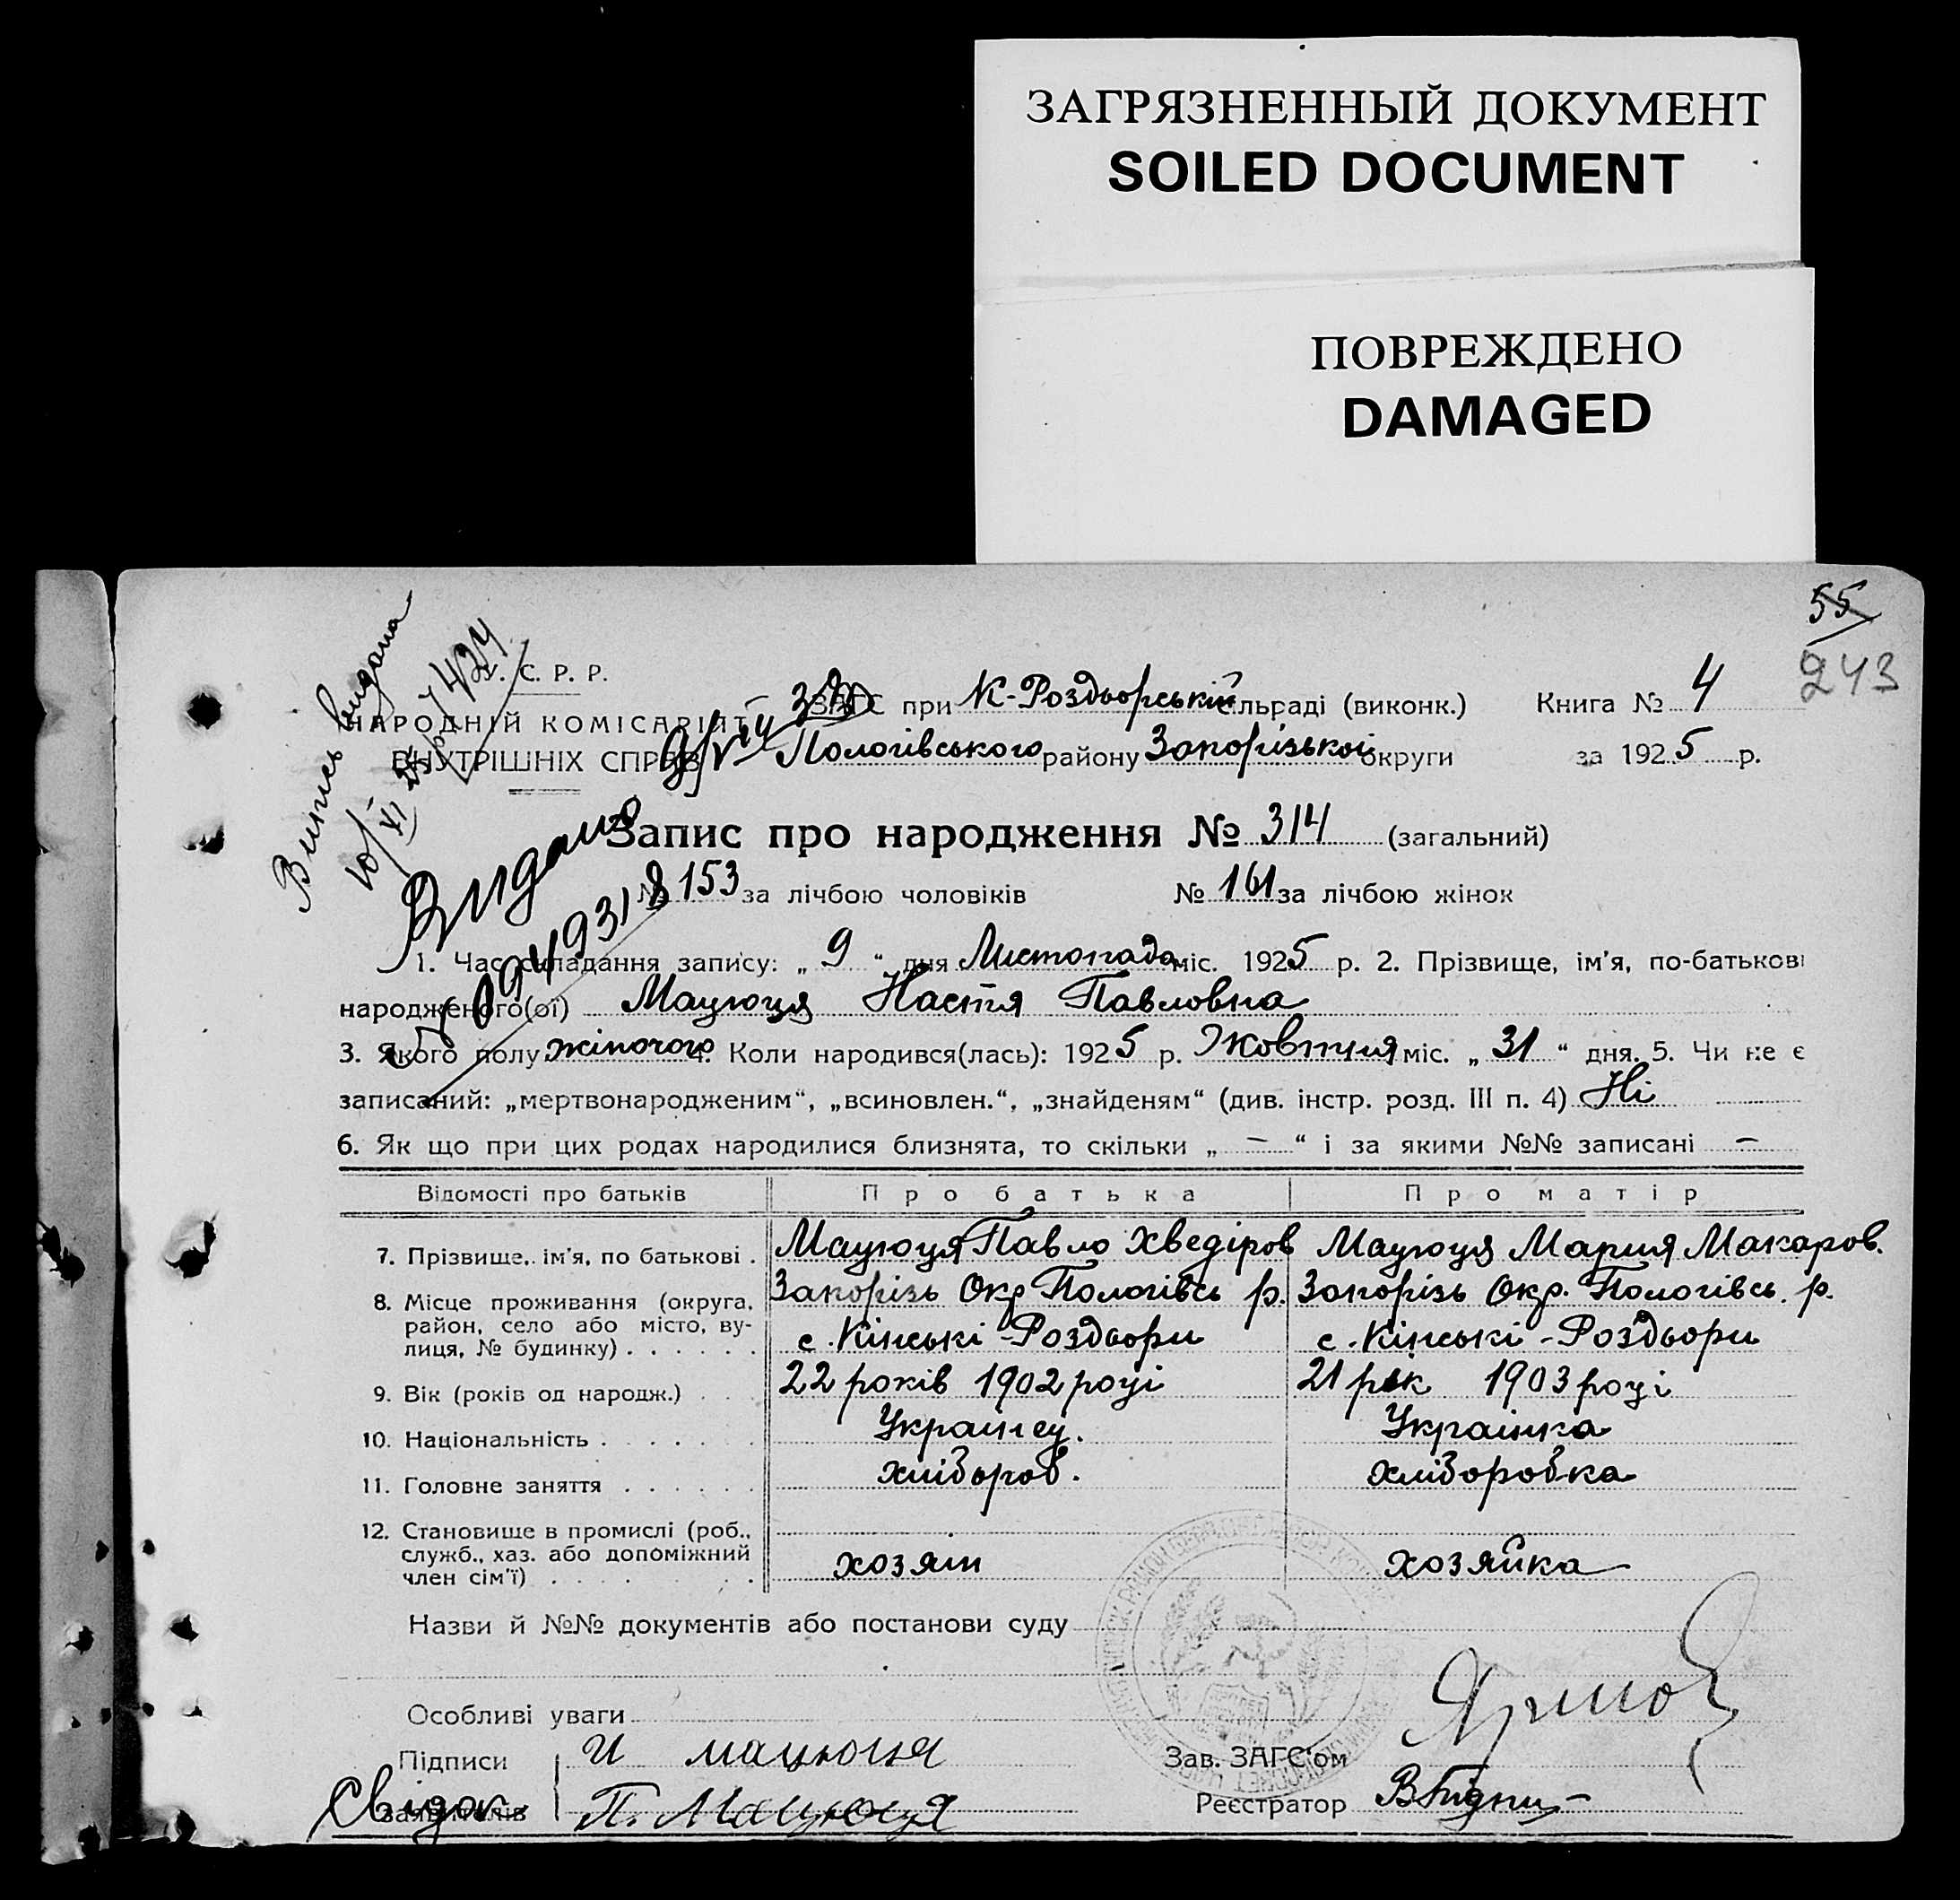 ЗАГРЯЗНЕННЫЙ ДОКУМЕНТ
SOILED DOCUMENT
ПОВРЕЖДЕНО
DAMAGED
55
243
Витись видана
У. С. Р. Р.
НАРОДНІЙ КОМІСАРІЯТ
ВНУТРІШНІХ СПРАВ
ЗАГС при К-Роздорській сільраді (виконк.) Книга № 4
Пологівського району Запорізької округи за 1925 р.
Видано
Запис про народження № 314 (загальний)
№ 153 за лічбою чоловіків № 161 за лічбою жінок
1. Час складання запису: „ 9 “ дня Листопада міс. 1925 р. 2. Прізвище, ім'я, по-батькові
народженого(ої) Мацюця Настя Павловна
3. Якого полу жіночого 4. Коли народився(лась): 1925 р. Жовтня міс. „ 31 “ дня. 5. Чи не є
записаний: „мертвонародженим“, „всиновлен.“, „знайденям“ (див. інстр. розд. III п. 4) Ні
6. Як що при цих родах народилися близнята, то скільки „ — “ і за якими №№ записані —
Відомості про батьків Про батька Про матір
7. Прізвище, ім'я, по батькові . Мацюця Павло Хведіров Мацюця Мария Макаров.
8. Місце проживання (округа, Запорізь Окр Пологівсь р. Запорізь Окр. Пологівсь. р.
район, село або місто, ву-
лиця, № будинку) . . . . . . с. Кінські-Роздори с. Кінські-Роздори
9. Вік (років од народж.) . . . 22 років 1902 році 21 рік 1903 році
10. Національність . . . . . . Українец. Українка
11. Головне заняття . . . . . . хлібороб. хліборобка
12. Становище в промислі (роб.,
служб., хаз. або допоміжний
член сім'ї) . . . . . . . . . хозяин хозяйка
Назви й №№ документів або постанови суду
Особливі уваги
Підписи И мацюця Зав. ЗАГС'ом
заявителів Свідок П. Мацюця Реєстратор